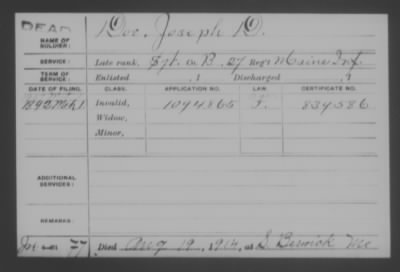 DEAD
NAME OF SOLDIER: Doe, Joseph D.
SERVICE: Late rank, Sgt. Co B. 27 Reg't Maine Inf.
TERM OF SERVICE: Enlisted , 1 Discharged , 1
DATE OF FILING. CLASS. APPLICATION NO. LAW. CERTIFICATE NO.
1892 Mch 1. Invalid, 1094865 834586
Widow,
Minor,
ADDITIONAL SERVICES:
REMARKS:
Died Aug 19, 1914, at S. Berwick Me